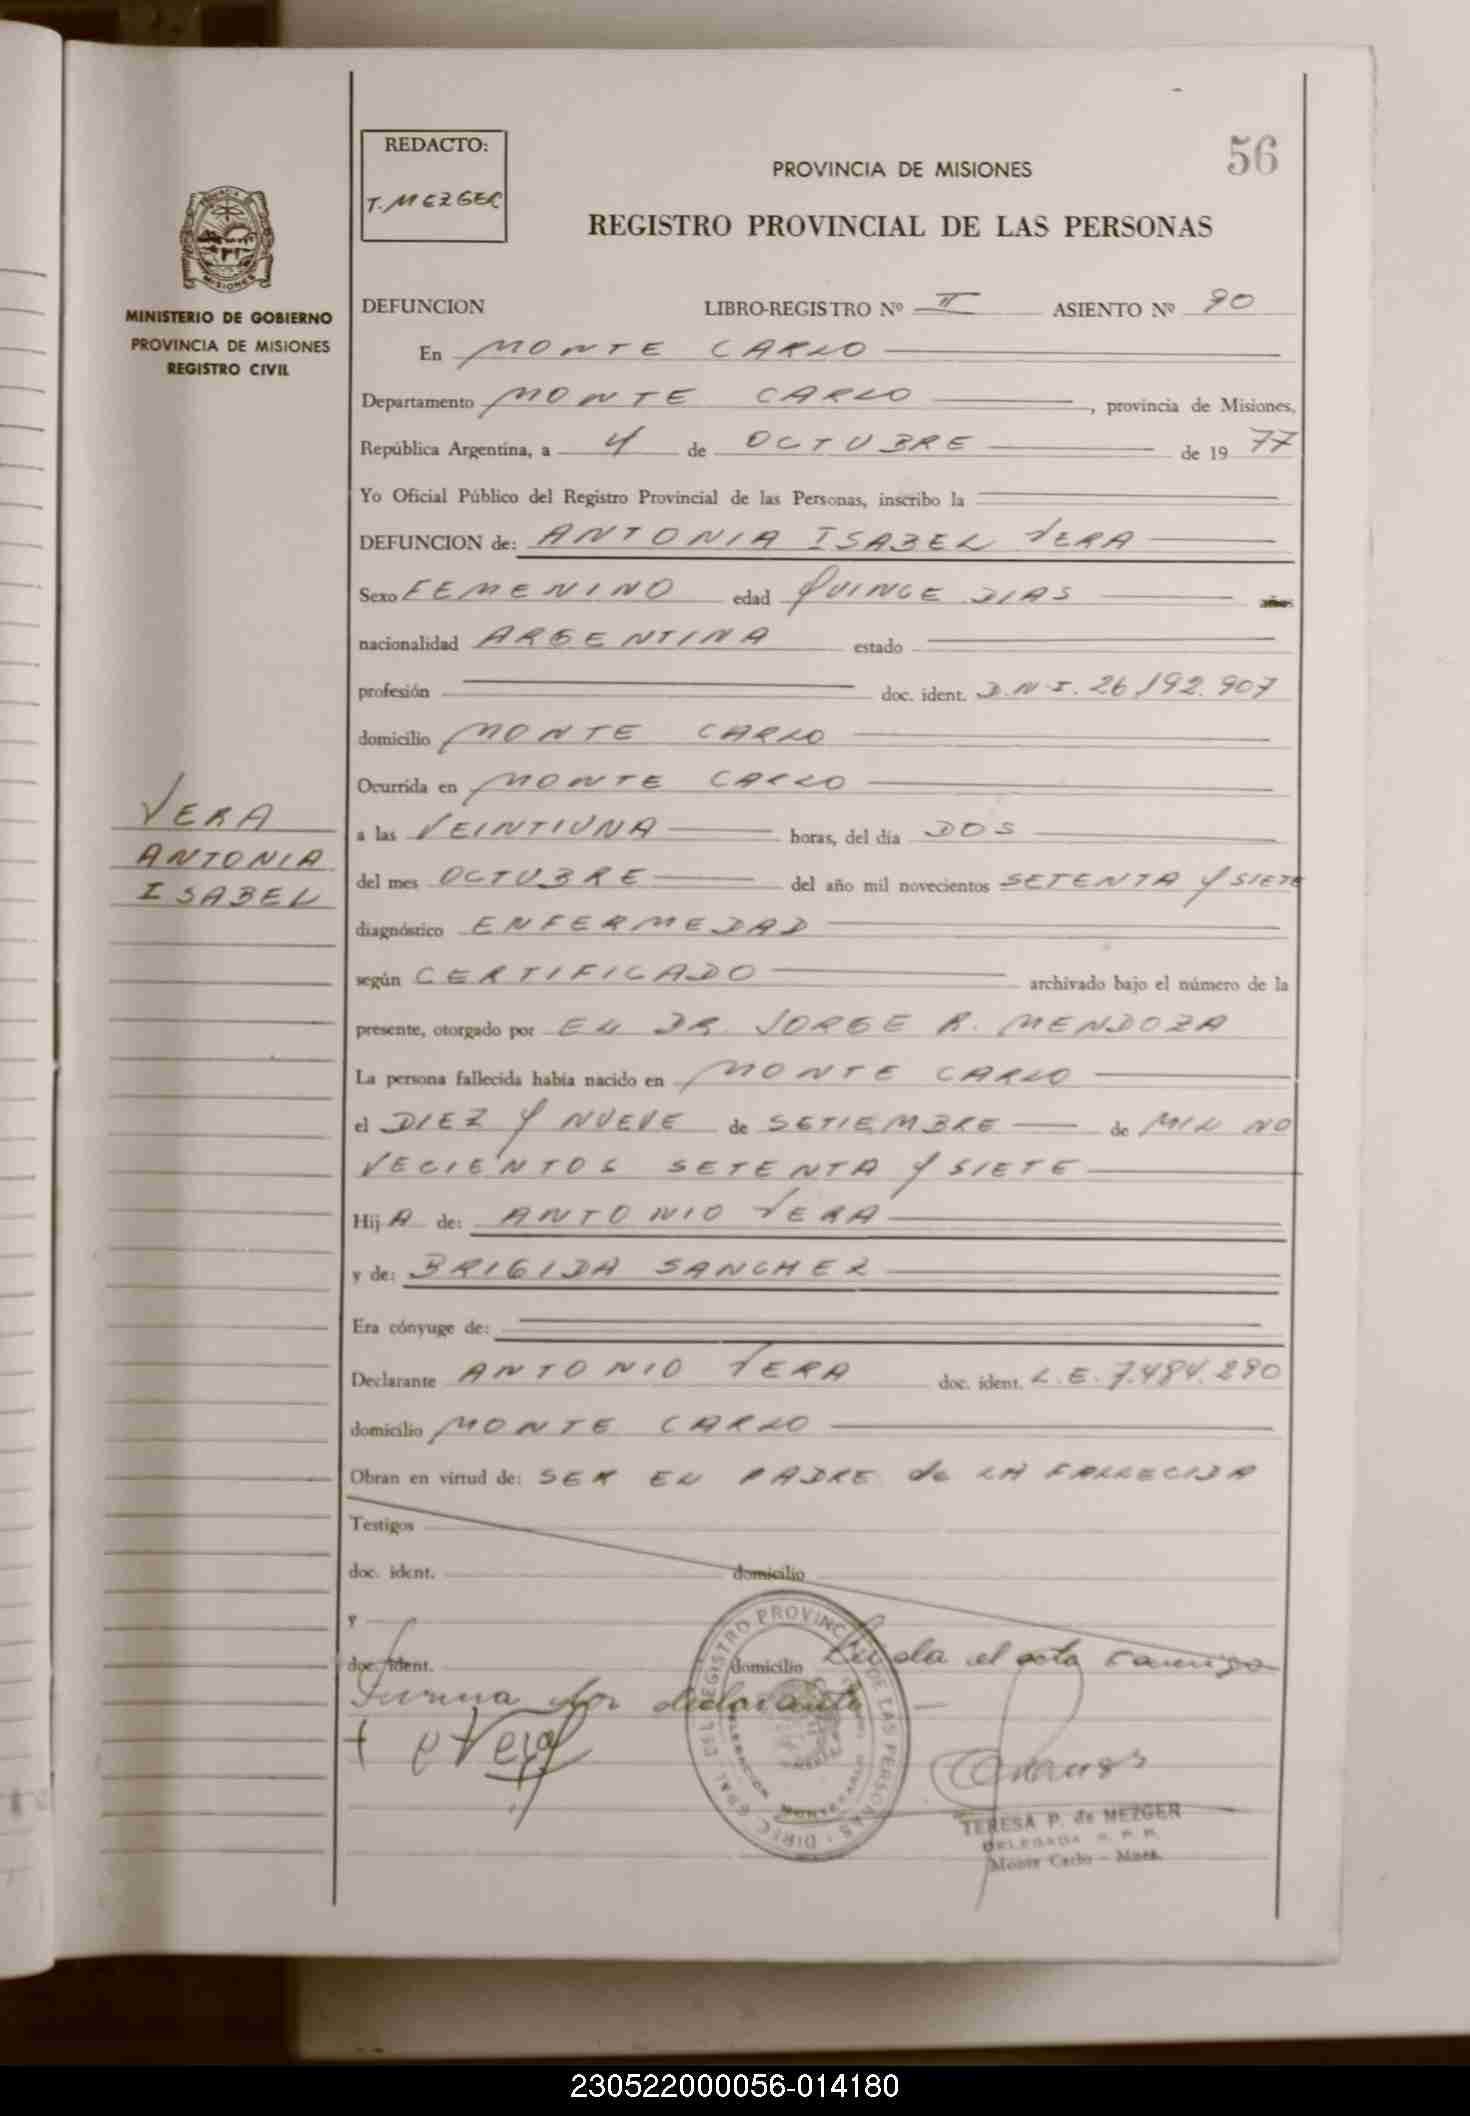 REDACTO:
T. MEZGER
56
PROVINCIA DE MISIONES
REGISTRO PROVINCIAL DE LAS PERSONAS
MISIONES
MINISTERIO DE GOBIERNO
PROVINCIA DE MISIONES
REGISTRO CIVIL
DEFUNCION LIBRO-REGISTRO Nº II ASIENTO Nº 90
En MONTE CARLO
Departamento MONTE CARLO, provincia de Misiones,
República Argentina, a 4 de OCTUBRE de 1977
Yo Oficial Público del Registro Provincial de las Personas, inscribo la
DEFUNCION de: ANTONIA ISABEL VERA
Sexo FEMENINO edad QUINCE DIAS años
nacionalidad ARGENTINA estado
profesión doc. ident. D.N.I. 26.192.907
domicilio MONTE CARLO
Ocurrida en MONTE CARLO
VERA
ANTONIA
ISABEL
a las VEINTIUNA horas, del día DOS
del mes OCTUBRE del año mil novecientos SETENTA Y SIETE
diagnóstico ENFERMEDAD
según CERTIFICADO archivado bajo el número de la
presente, otorgado por EL DR. JORGE R. MENDOZA
La persona fallecida había nacido en MONTE CARLO
el DIEZ Y NUEVE de SETIEMBRE de MIL NO
VECIENTOS SETENTA Y SIETE
Hij A de: ANTONIO VERA
y de: BRIGIDA SANCHEZ
Era cónyuge de:
Declarante ANTONIO VERA doc. ident. L.E. 7.484.290
domicilio MONTE CARLO
Obran en virtud de: SER EL PADRE de LA FALLECIDA
Testigos
doc. ident. domicilio
y
doc. ident. domicilio Leída el acta
Firma declarante
Vera
DIREC. GRAL. DEL REGISTRO PROVINCIAL DE LAS PERSONAS
DELEGACION
TERESA P. de MEZGER
DELEGADA R. P. P.
Monte Carlo - Mnes.
230522000056-014180